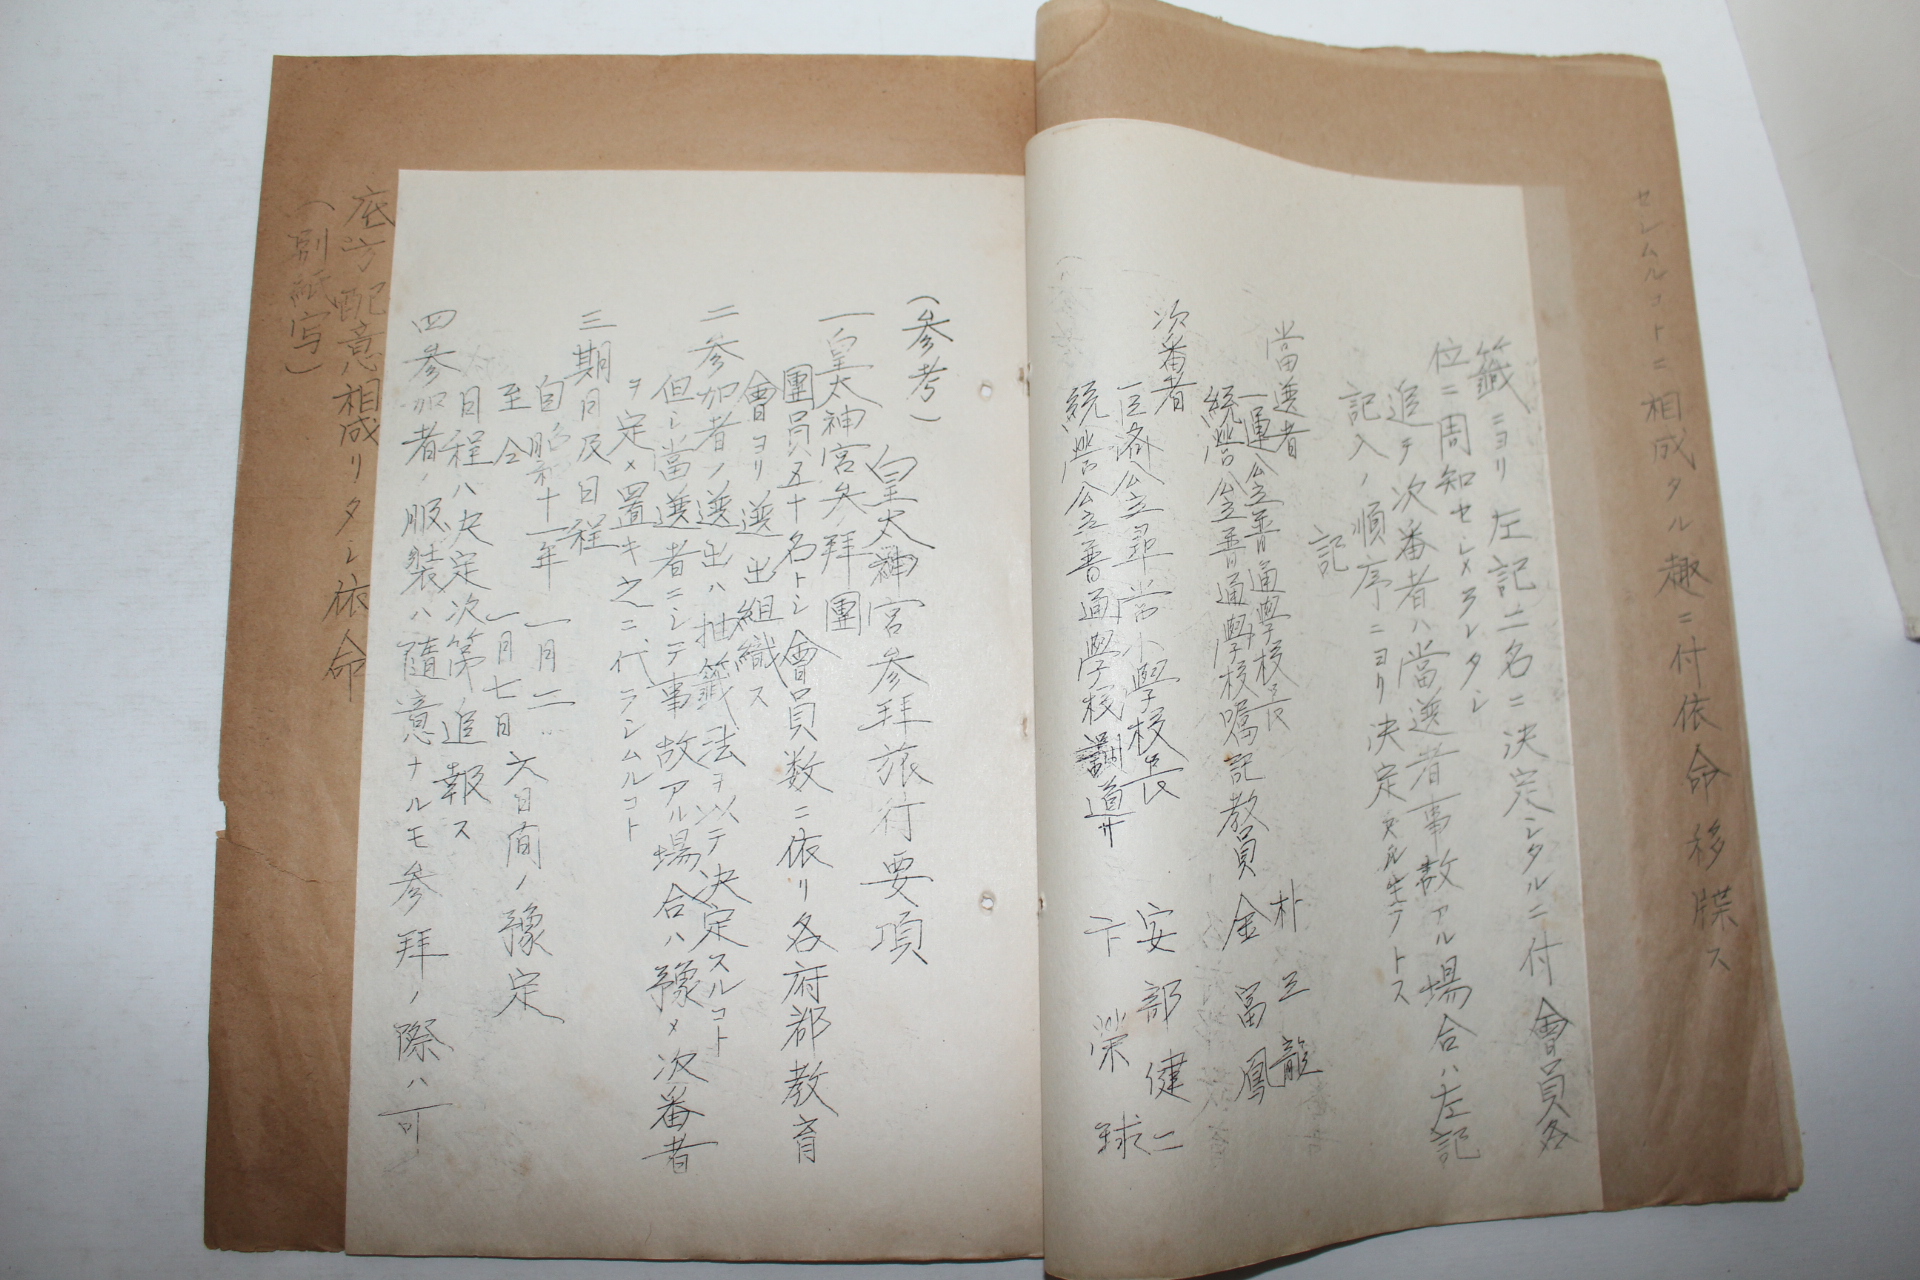 セシムルコトニ相成タル趣ニ付依命移牒ス
籤ニヨリ左記二名ニ決定シタルニ付會員各
位ニ周知セシメラレタシ
追テ次番者ハ當選者事故アル場合ハ左記
記入ノ順序ニヨリ決定
記
當選者
一運 公立普通學校長 朴 立 龍
統營公立普通學校嘱記教員 金 富 鳳
次番者
一巨済公立尋常小學校長 安部健一
統營公立普通學校訓導 卞 榮 球
(参考)
皇太神宮参拜旅行要項
一皇太神宮参拜團
團員五十名トシ會員数ニ依リ各府郡教育
會ヨリ選出組織ス
二参加者ノ選出ハ抽籤法ヲ以テ決定スルコト
但シ當選者ニシテ事故アル場合ハ豫メ次番者
ヲ定メ置キ之ニ代ラシムルコト
三期日及日程
自昭和十一年一月二
至仝 一月七日 六日間ノ豫定
日程ハ決定次第追報ス
四参加者ノ服装ハ随意ナルモ参拜ノ際ハ可
底方配意相成リタシ依命
(別紙写)